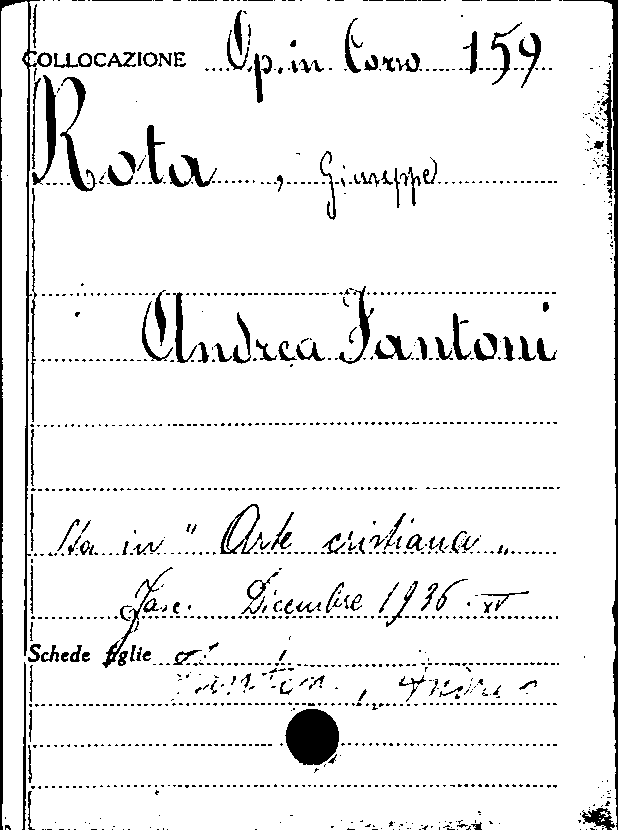 COLLOCAZIONE Op. in Corso 159
Rota, Giuseppe
Andrea Fantoni
Sta in "Arte cristiana"
Fasc. Dicembre 1936 - XV
Schede figlie
Fantoni, Andrea